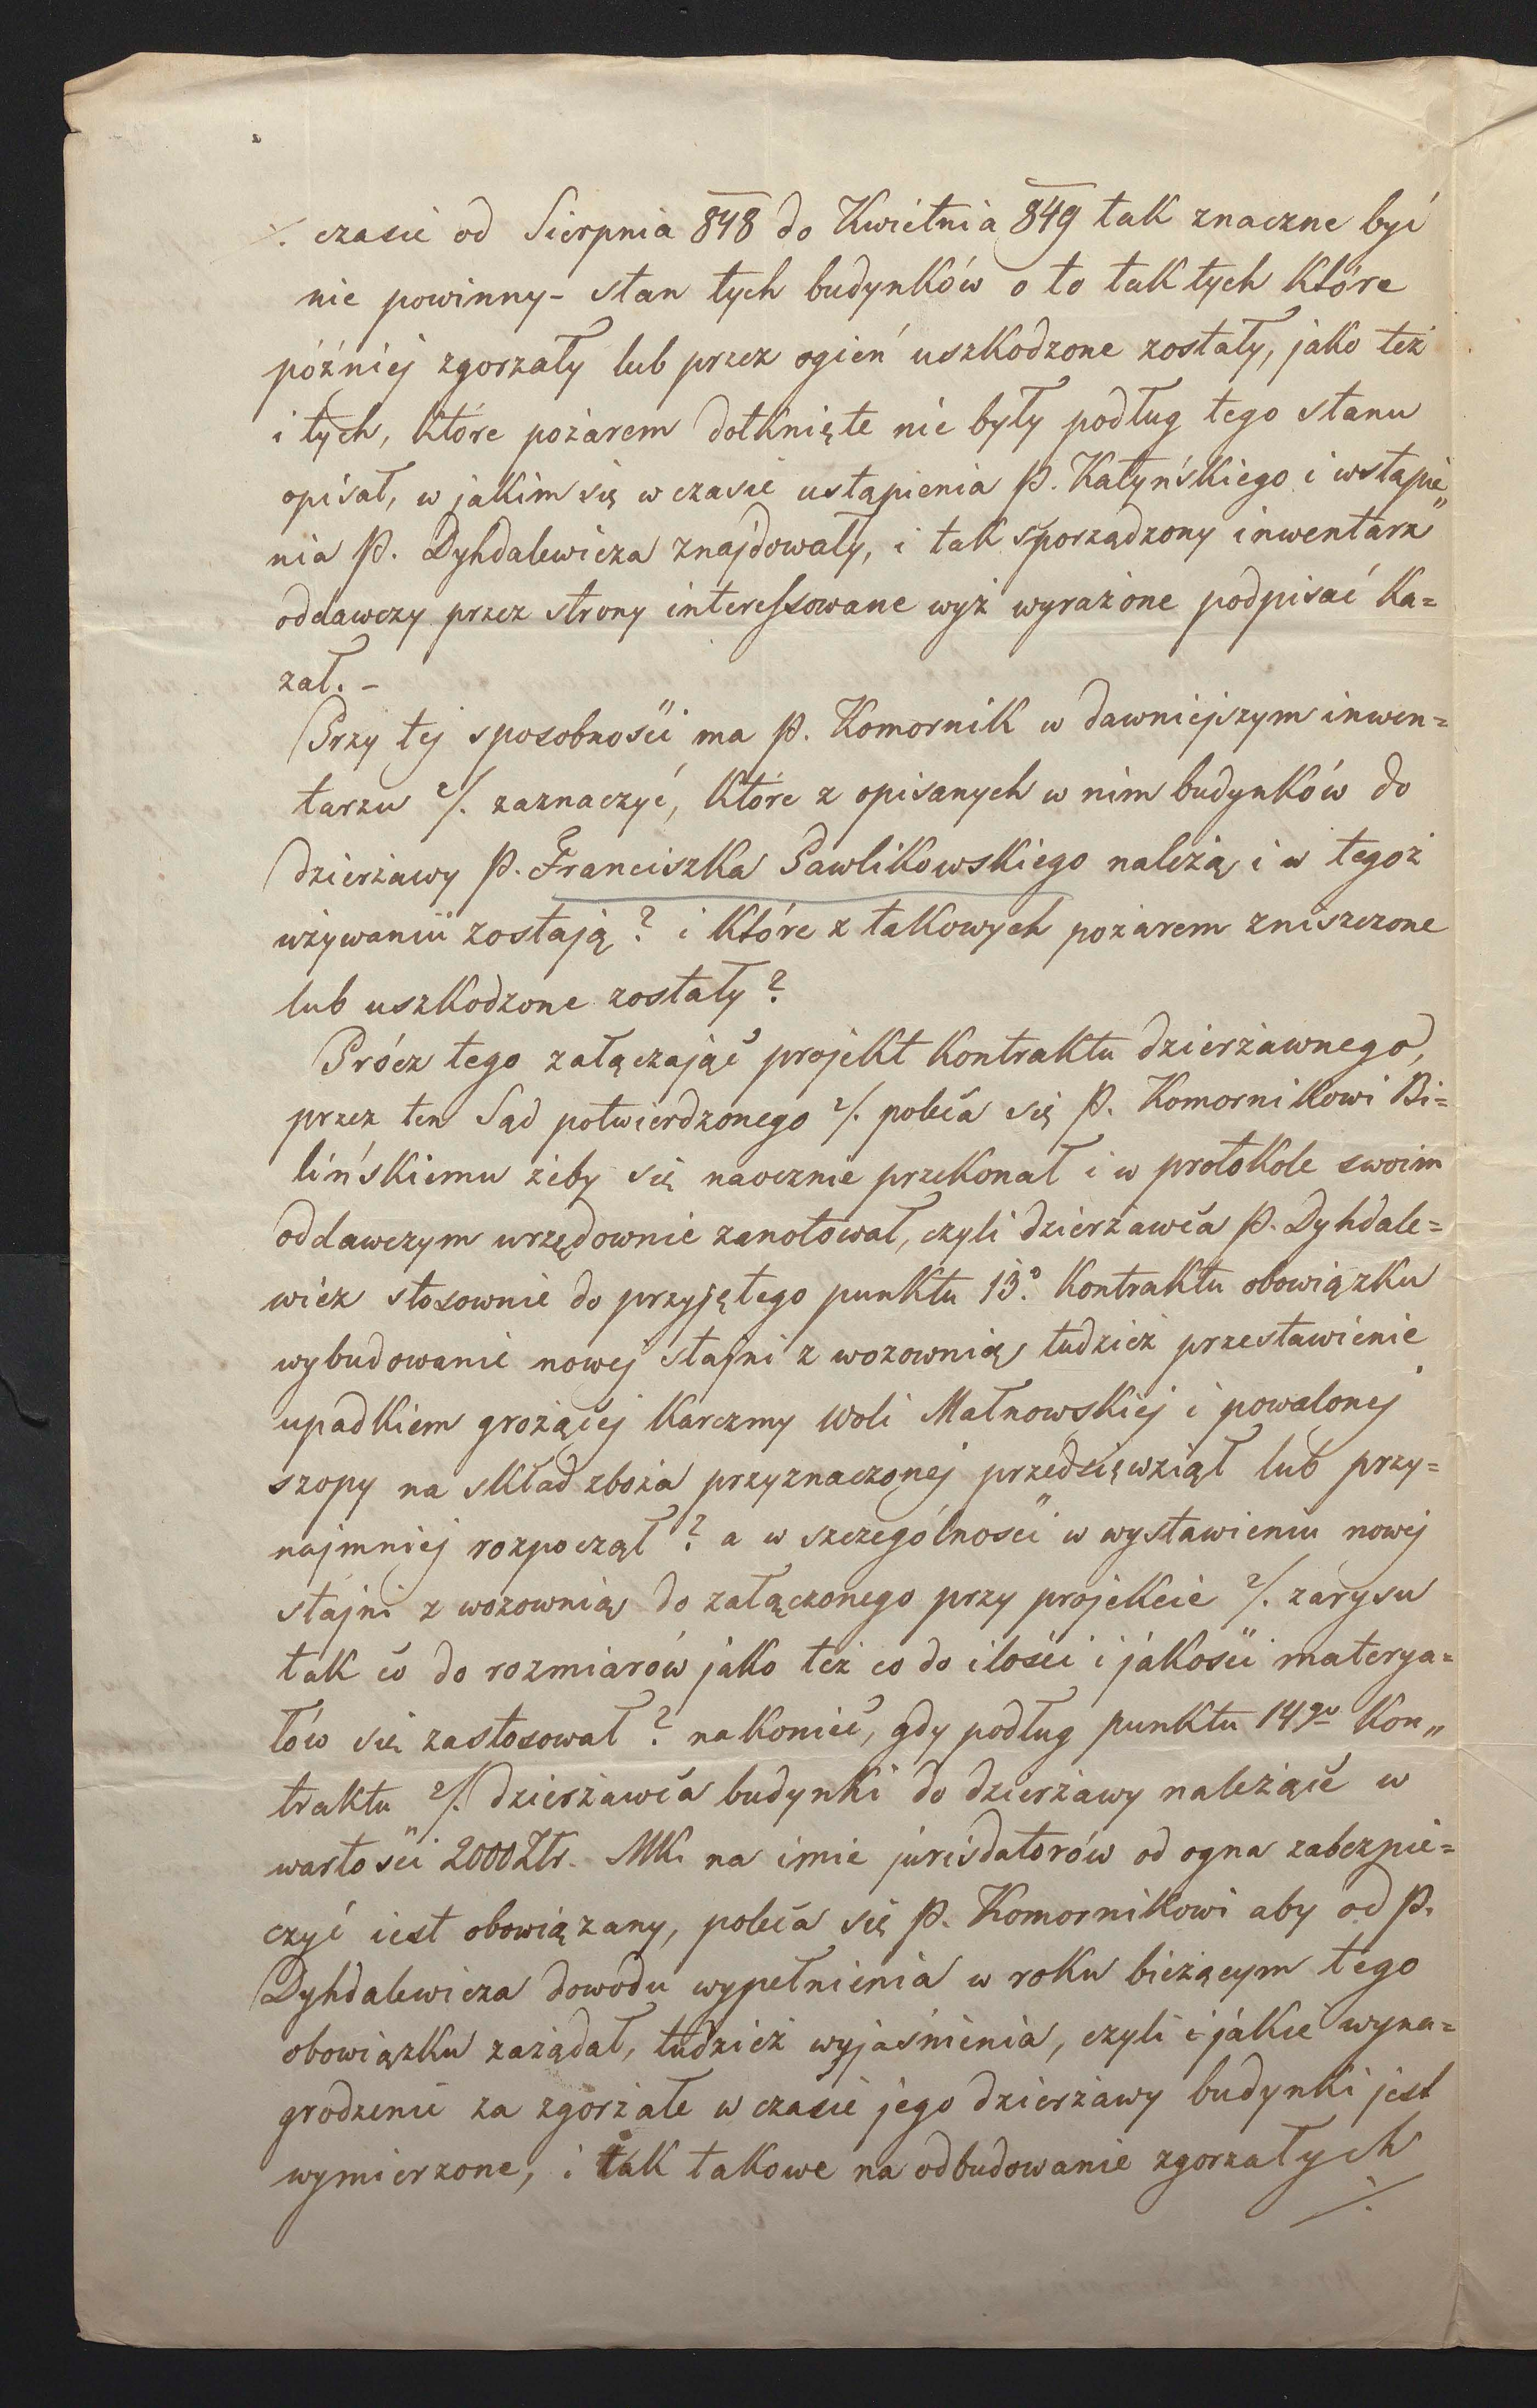 ./. czasie od Sierpnia 848 do Kwietnia 849 tak znaczne być
nie powinny - stan tych budynków o to tak tych które
później zgorzały lub przez ogień uszkodzone zostały, jako też
i tych, które pożarem dotknięte nie były podług tego stanu
opisał, w jakim się w czasie ustąpienia P. Katyńskiego i wstąpie„
nia P. Dyhdalewicza znajdowały, i tak sporządzony inwentarz
oddawczy przez strony interessowane wyż wyrażone podpisać ka=
zał. -
Przy tej sposobności ma P. Komornik w dawniejszym inwen=
tarzu ./. zaznaczyć, które z opisanych w nim budynków do
dzierżawy P. Franciszka Pawlikowskiego należą i w tegoż
używaniu zostają? i które z takowych pożarem zniszczone
lub uszkodzone zostały?
Prócz tego załączając projekt kontraktu dzierżawnego,
przez ten Sąd potwierdzonego ./. poleca się P. Komornikowi Bi=
lińskiemu żeby się naocznie przekonał i w protokole swoim
oddawczym urzędownie zanotował, czyli dzierżawca P. Dyhdale=
wicz stosownie do przyjętego punktu 13° kontraktu obowiązku
wybudowanie nowej stajni z wozownią tudzież przestawienie
upadkiem grożącej karczmy Woli Małnowskiej i powalonej
szopy na skład zboża przyznaczonej przedsięwziął lub przy=
najmniej rozpoczął? a w szczególności w wystawieniu nowej
stajni z wozownią do załączonego przy projekcie ./. zarysu
tak co do rozmiarów jako też co do ilości i jakości materya=
łów się zastosował? nakoniec, gdy podług punktu 14go kon„
traktu ./. dzierżawca budynki do dzierżawy należące w
wartości 2000 Złr. MK. na imie jurisdatorów od ogna zabezpie=
czyć iest obowiązany, poleca się P. Komornikowi aby od P.
Dyhdalewicza dowodu wypełnienia w roku bieżącym tego
obowiązku zażądał, tudzież wyjaśnienia, czyli i jakie wyna=
grodzenie za zgorzałe w czasie jego dzierżawy budynki jest
wymierzone, i tak takowe na odbudowanie zgorzałych
./.